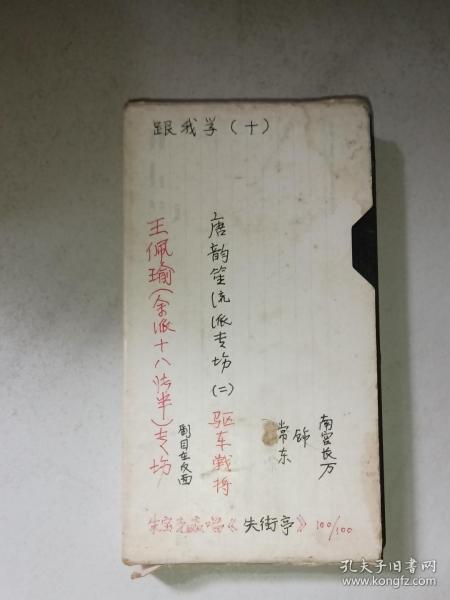 跟我学(十)
南宫长万
饰
常东
唐韵笙流派专场(二)驱车战将
王佩瑜(余派十八张半)专场
剧目在反面
《失街亭》100/100
孔夫子旧书网
www.kongfz.com